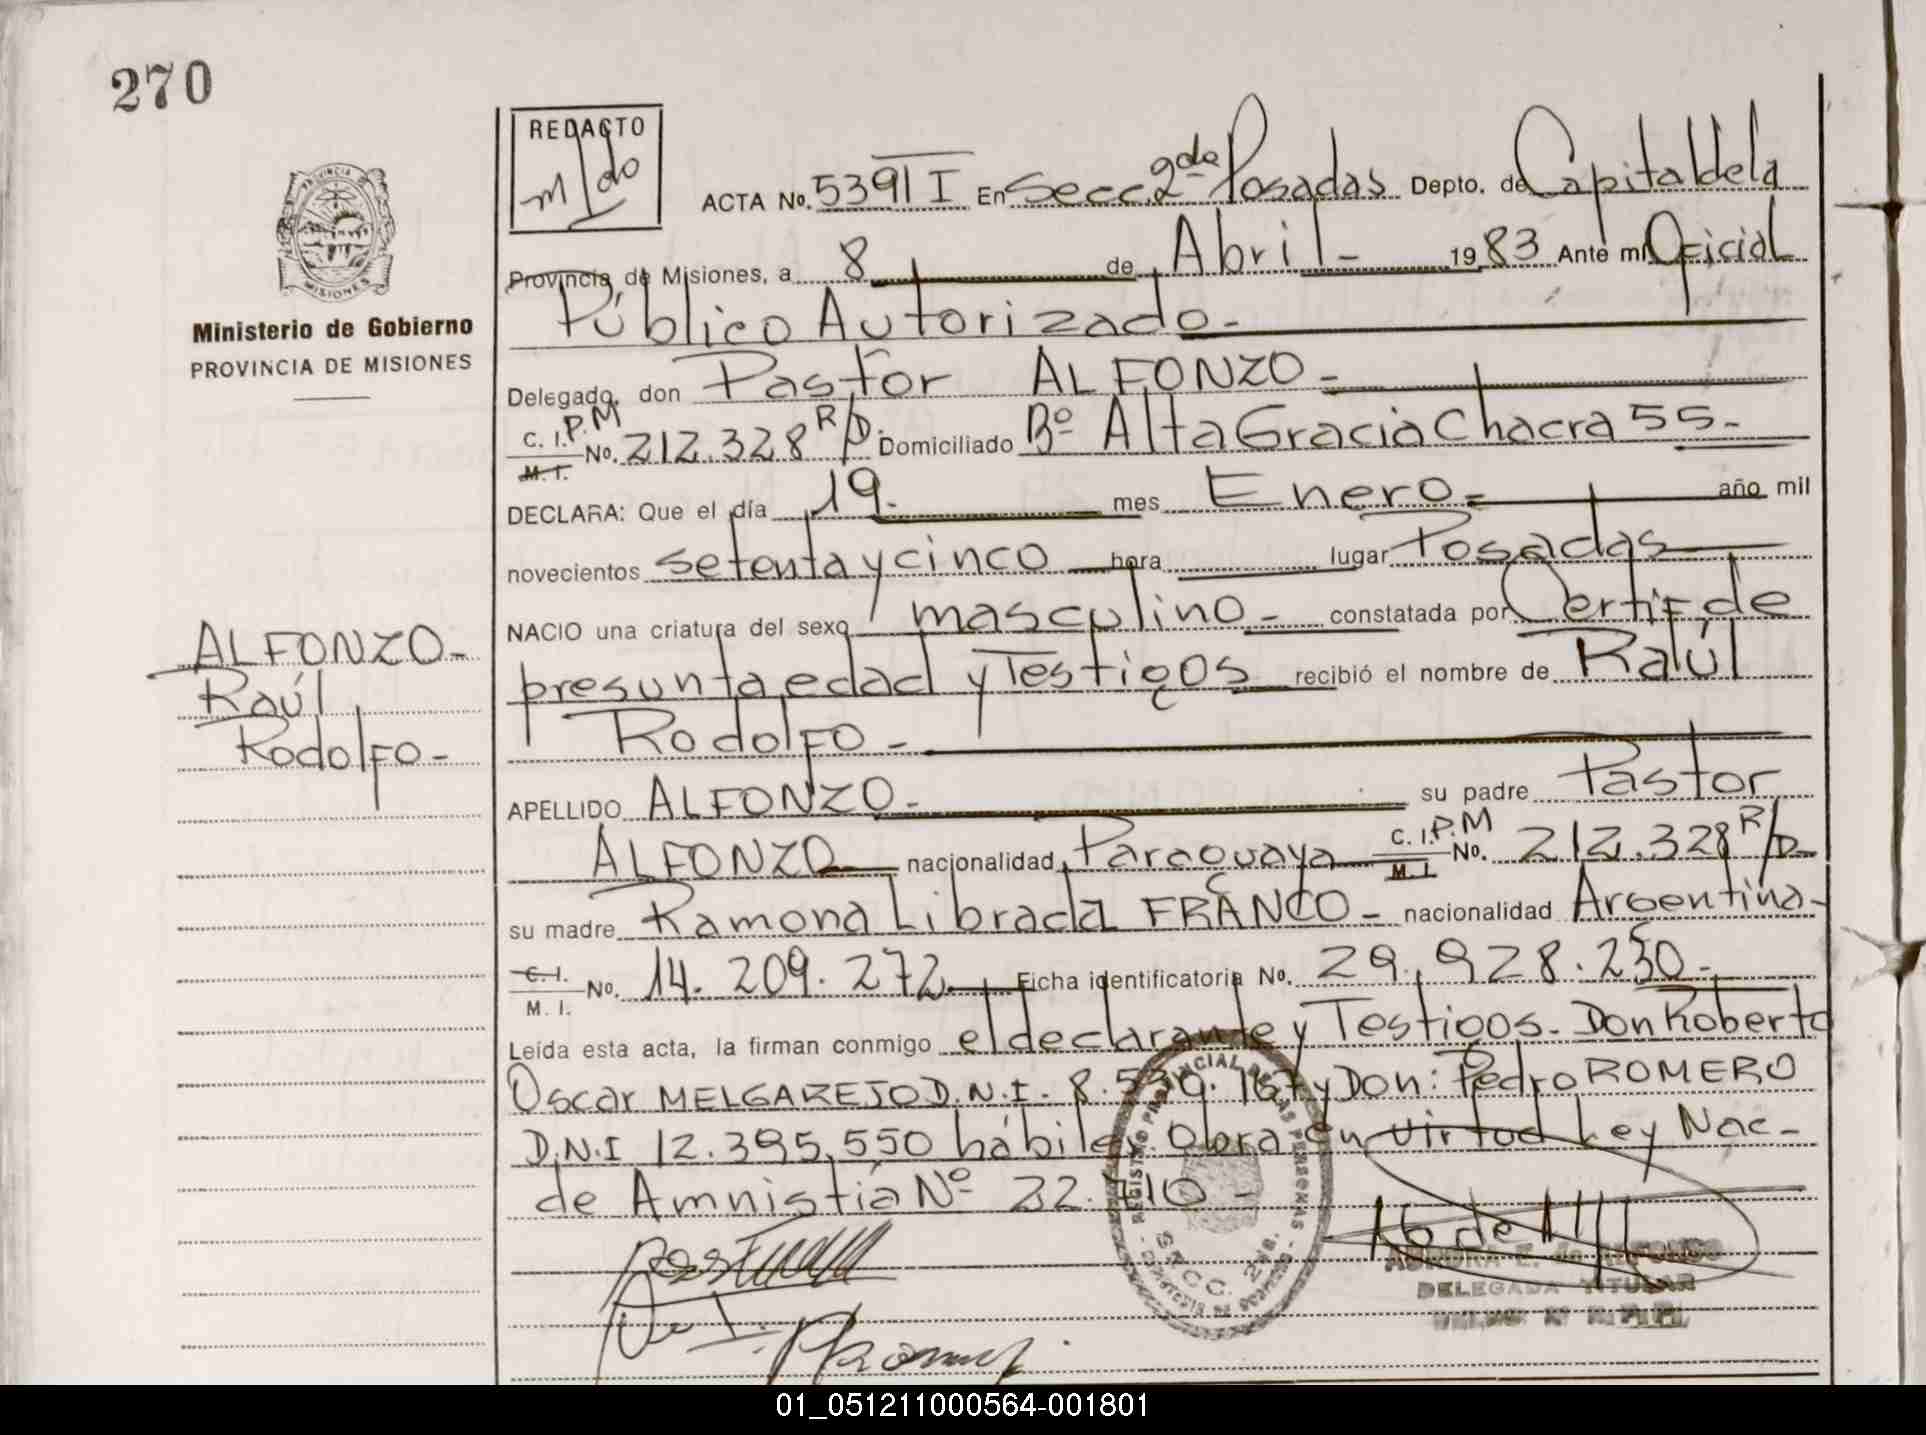 270
REDACTO
m/do
PROVINCIA
MISIONES
Ministerio de Gobierno
PROVINCIA DE MISIONES
ACTA No. 5391 I En Secc. 2da Posadas Depto. de Capital de la
Provincia, de Misiones, a 8 de Abril - 1983 Ante mí Oficial
Público Autorizado -
Delegado, don Pastor ALFONZO -
C. I.P.M
M. I. No. 212.328 R/D. Domiciliado Bº Alta Gracia Chacra 55 -
DECLARA: Que el día 19. mes Enero - año mil
novecientos setenta y cinco hora lugar Posadas
NACIO una criatura del sexo masculino - constatada por Certif. de
presunta edad y Testigos recibió el nombre de Raúl
Rodolfo -
ALFONZO -
Raúl
Rodolfo -
APELLIDO ALFONZO - su padre Pastor
ALFONZO nacionalidad Paraguaya C. I.P.M
M. I. No. 212.328 R/D
su madre Ramona Librada FRANCO - nacionalidad Argentina -
C. I.
M. I. No. 14.209.272. Ficha identificatoria No. 29.928.250 -
Leída esta acta, la firman conmigo el declarante y Testigos - Don Roberto
Oscar MELGAREJO D.N.I. 8.539.167 y Don: Pedro ROMERO
D.N.I 12.395.550 hábiles. Obra en virtud Ley Nac -
de Amnistía Nº 22.410 -
REGISTRO PROVINCIAL DE LAS PERSONAS
SECC. 2da.
DELEGADA TITULAR
01_051211000564-001801